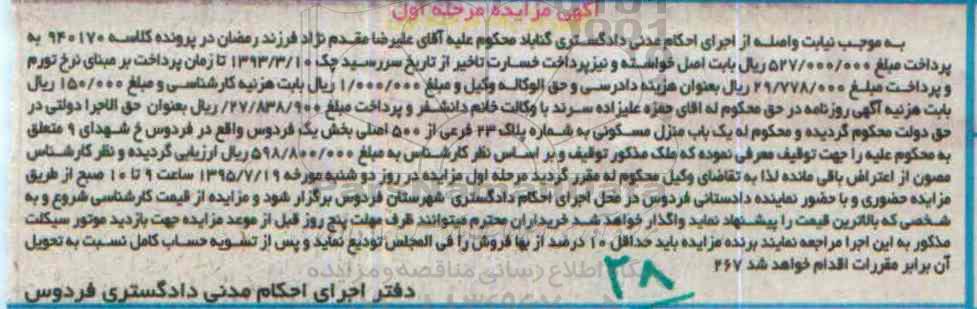 آگهی مزایده مرحله اول
به موجب نیابت واصله از اجرای احکام مدنی دادگستری گناباد محکوم علیه آقای علیرضا مقدم نژاد فرزند رمضان در پرونده کلاسه ۹۴۰۱۷۰ به
پرداخت مبلغ ۵۲۷/۰۰۰/۰۰۰ ریال بابت اصل خواسته و نیز پرداخت خسارت تاخیر از تاریخ سررسید چک ۱۳۹۳/۳/۱۰ تا زمان پرداخت بر مبنای نرخ تورم
و پرداخت مبلغ ۲۹/۷۷۸/۰۰۰ ریال بعنوان هزینه دادرسی و حق الوکاله وکیل و مبلغ ۱/۰۰۰/۰۰۰ ریال بابت هزینه کارشناسی و مبلغ ۱۵۰/۰۰۰ ریال
بابت هزنیه آگهی روزنامه در حق محکوم له اقای حمزه علیزاده سرند با وکالت خانم دانشفر و پرداخت مبلغ ۲۷/۸۳۸/۹۰۰/ ریال بعنوان حق الاجرا دولتی در
حق دولت محکوم گردیده و محکوم له یک باب منزل مسکونی به شماره پلاک ۲۳ فرعی از ۵۰۰ اصلی بخش یک فردوس واقع در فردوس خ شهدای ۹ متعلق
به محکوم علیه را جهت توقیف معرفی نموده که ملک مذکور توقیف و بر اساس نظر کارشناس به مبلغ ۵۹۸/۸۰۰/۰۰۰ ریال ارزیابی گردیده و نظر کارشناس
مصون از اعتراض باقی مانده لذا به تقاضای وکیل محکوم له مقرر گردید مرحله اول مزایده در روز دو شنبه مورخه ۱۳۹۵/۷/۱۹ ساعت ۹ تا ۱۰ صبح از طریق
مزایده حضوری و با حضور نماینده دادستانی فردوس در محل اجرای احکام دادگستری شهرستان فردوس برگزار شود و مزایده از قیمت کارشناسی شروع و به
شخصی که بالاترین قیمت را پیشنهاد نماید واگذار خواهد شد خریداران محترم میتوانند ظرف مهلت پنج روز قبل از موعد مزایده جهت بازدید موتور سیکلت
مذکور به این اجرا مراجعه نمایند برنده مزایده باید حداقل ۱۰ درصد از بها فروش را فی المجلس تودیع نماید و پس از تسویه حساب کامل نسبت به تحویل
آن برابر مقررات اقدام خواهد شد ۲۶۷
۲۸
دفتر اجرای احکام مدنی دادگستری فردوس
ParsNamadData
پایگاه اطلاع رسانی مناقصه و مزایده